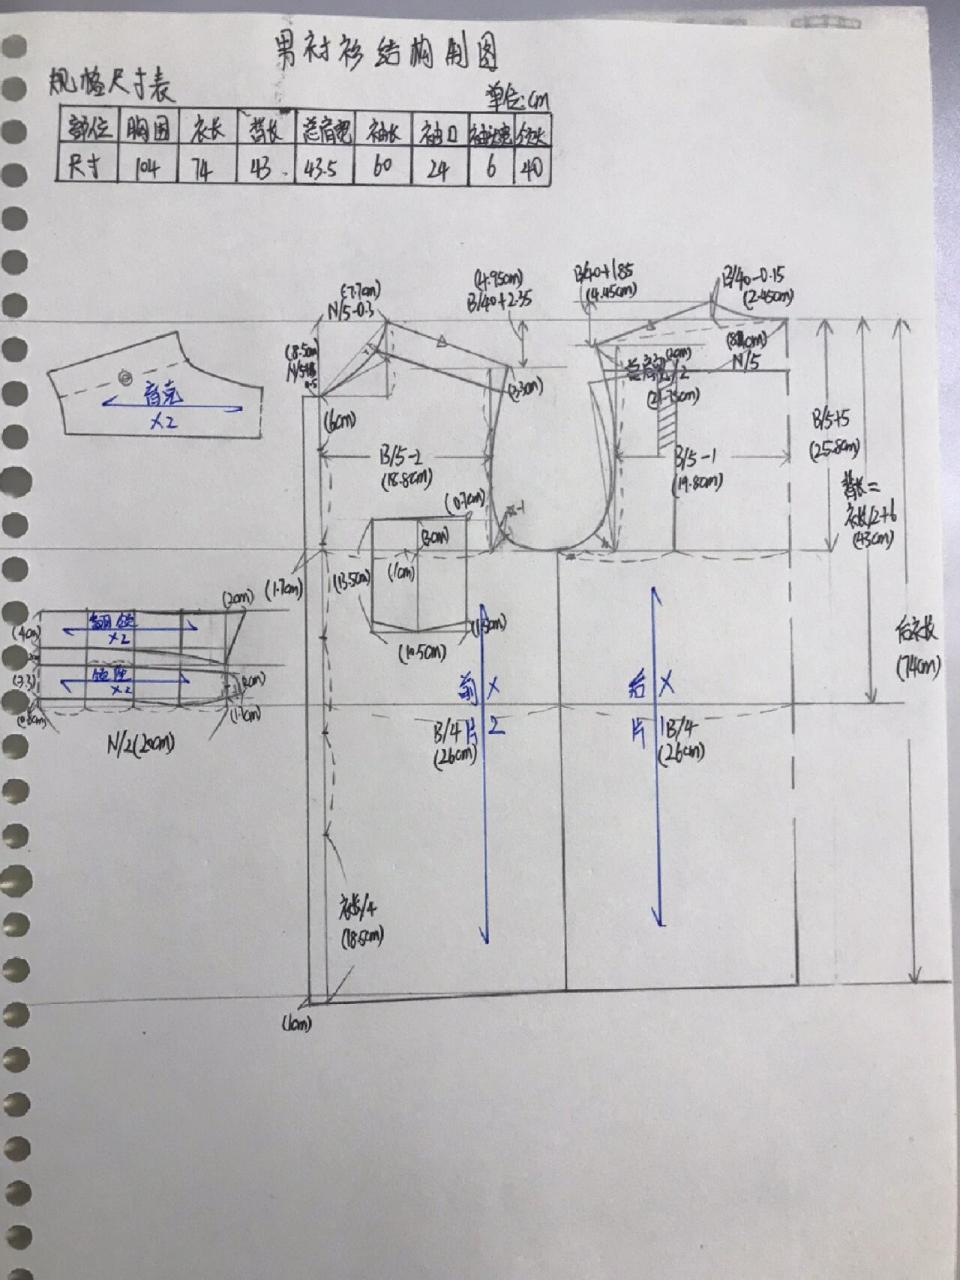 男衬衫结构制图
规格尺寸表
单位:cm
部位 胸围 衣长 背长 总肩宽 袖长 袖口 领大
尺寸 104 74 43 43.5 60 24 6 40
(7.7cm)
N/5-0.3
(4.95cm)
B/40+2.35
B/40+1.85
(4.45cm)
B/40-0.15
(2.45cm)
(8.5cm)
(8cm)
N/5
总肩宽/2
(21.75cm)
(3.3cm)
(6cm)
B/5-2
(18.8cm)
B/5-1
(19.8cm)
B/5+5
(25.8cm)
背长=
衣长/2+6
(43cm)
后衣长
(74cm)
育克
×2
(0.7cm)
(3cm)
(1cm)
(13.5cm)
(1.5cm)
(10.5cm)
(1.7cm)
(2cm)
(4cm)
翻领
×2
领座
×2
(3.3)
N/2(20cm)
前片×2
B/4
(26cm)
后片×1
B/4
(26cm)
衣长/4
(18.5cm)
(1cm)